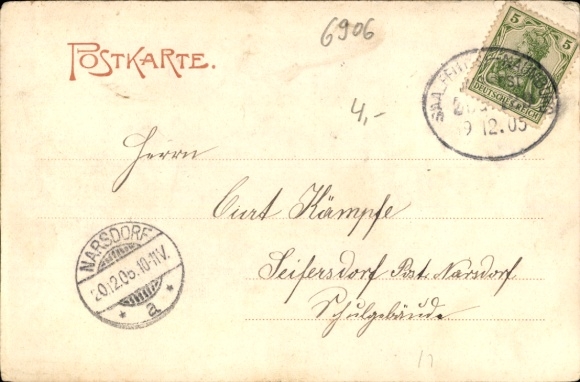 6906
POSTKARTE.
5 5
DEUTSCHES REICH
9 12.05
4,-
Herrn
Curt Kämpfe
Seifersdorf Post Narsdorf
Schulgebäude
NARSDORF
20.12.05.10-11V.
* a *